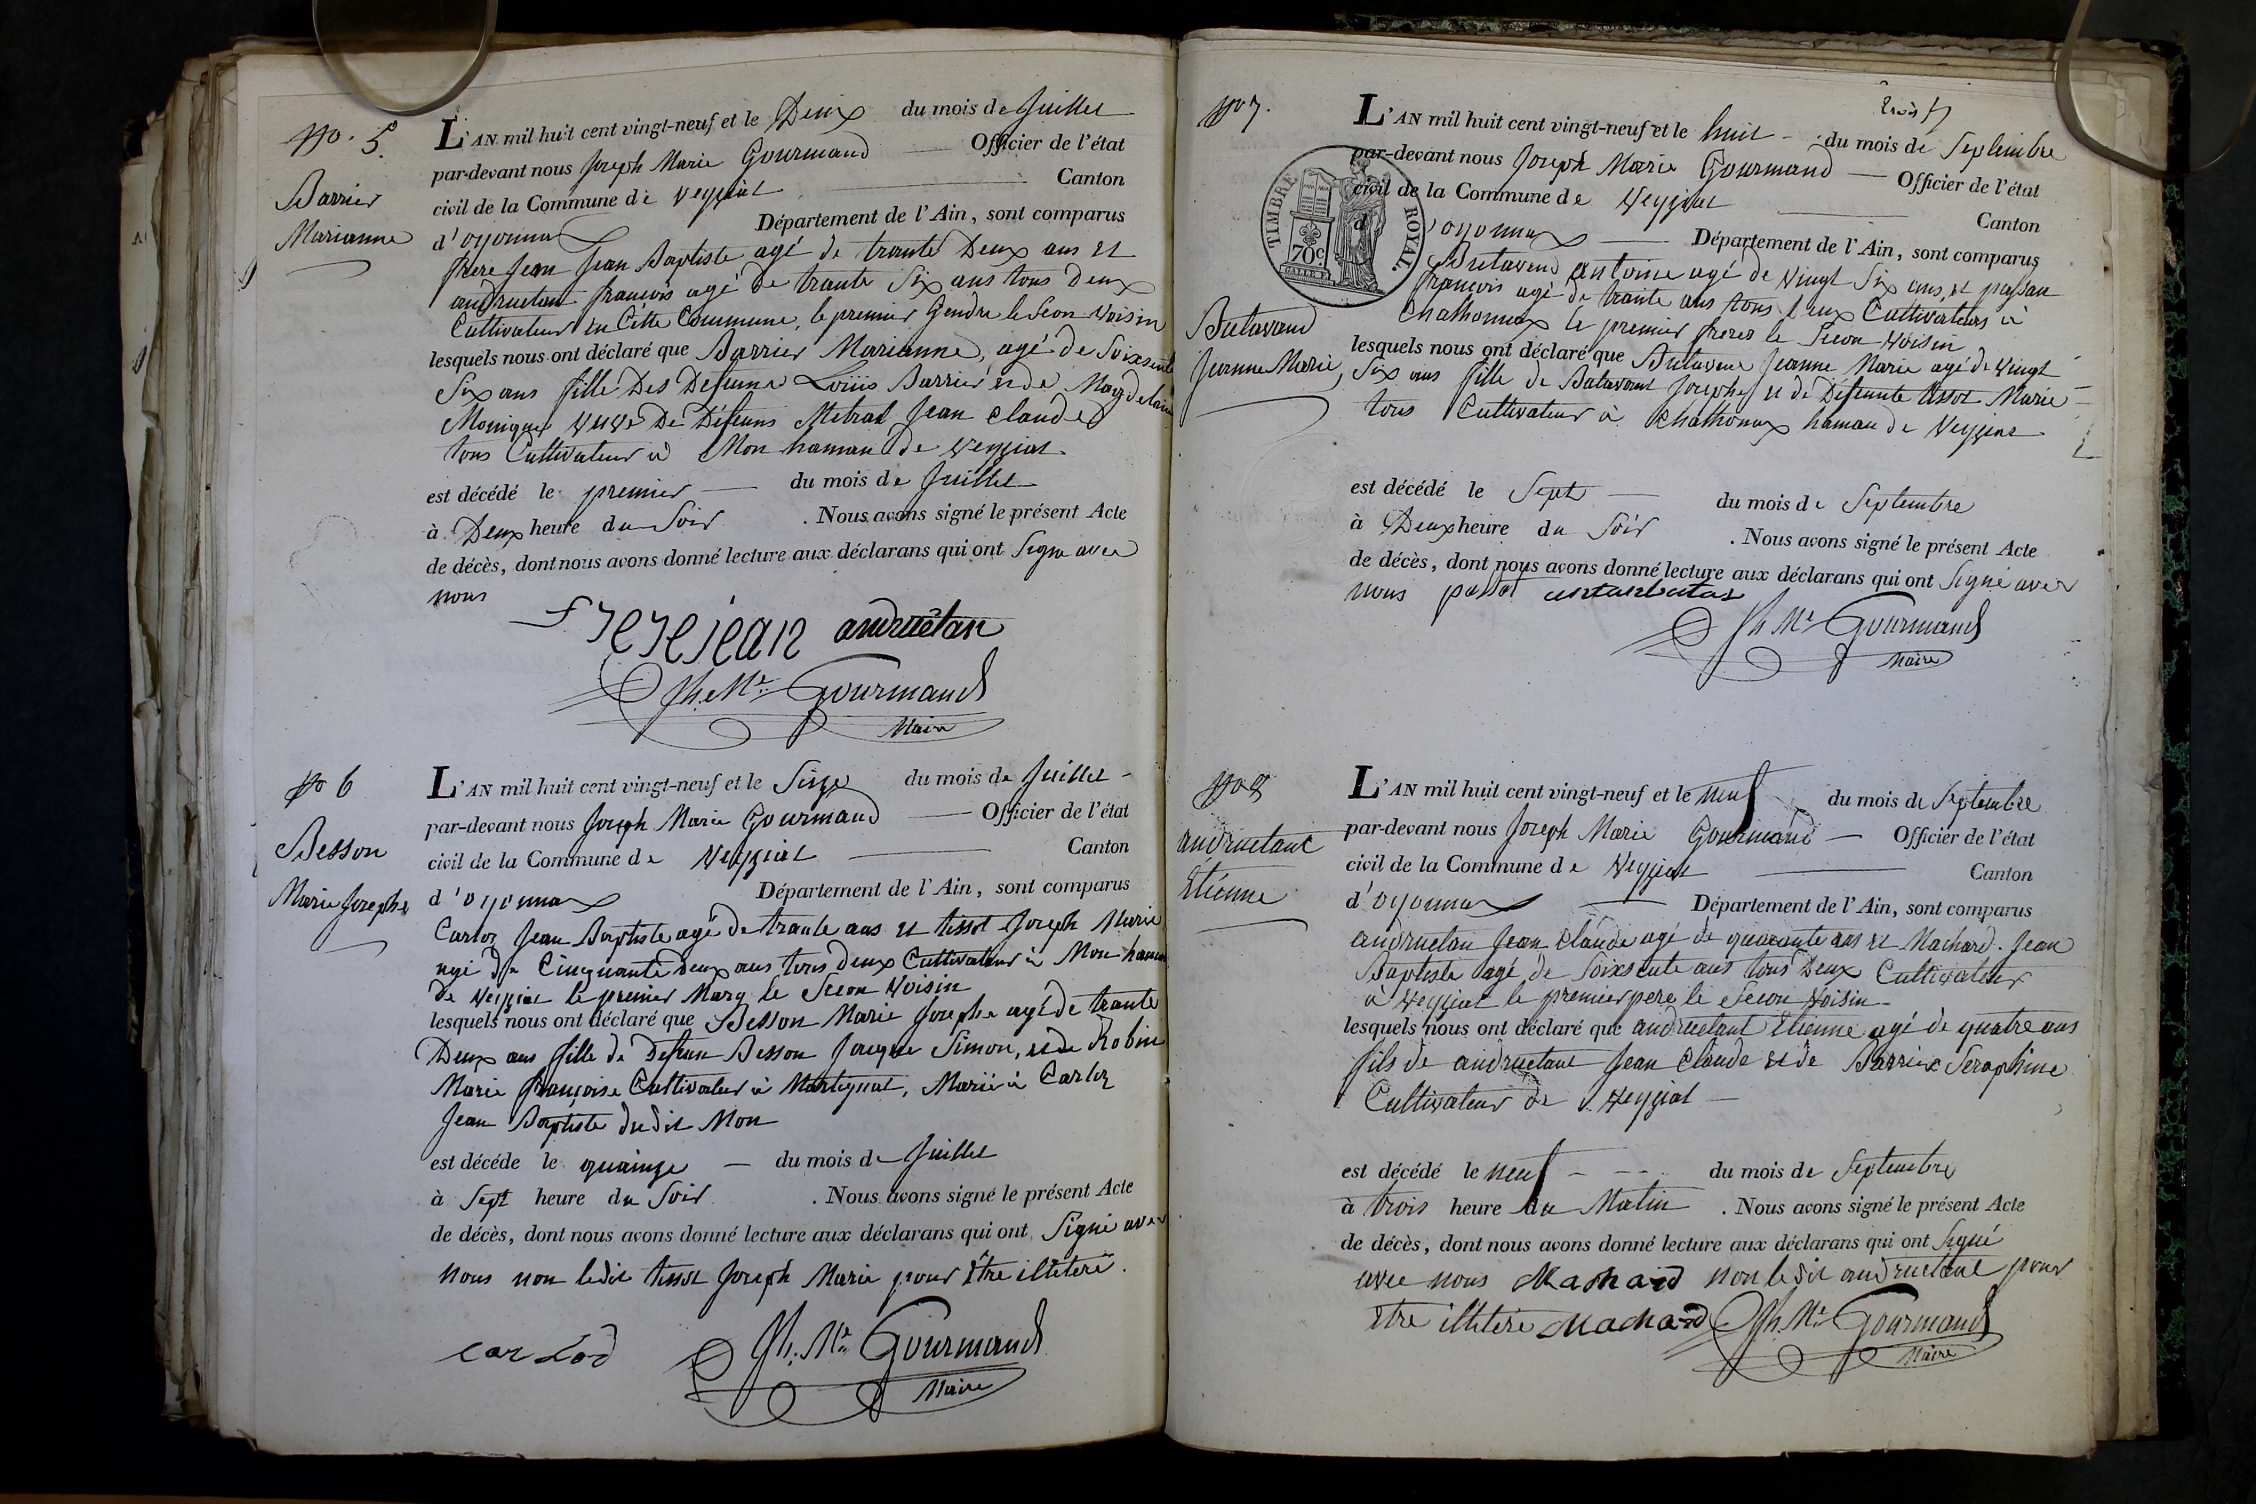 No. 5.
Barrier
Marianne
L'AN mil huit cent vingt-neuf et le Deux du mois de Juillet
par-devant nous Joseph Marie Gourmand Officier de l'état
civil de la Commune de Veyziat Canton
d'oyonnax Département de l'Ain, sont comparus
frere Jean Jean Baptiste agé de trante Deux ans et
andruetant françois agé de trante Six ans tous deux
Cultivateur en Cette Commune, le premier Gendre le Secon Voisin
lesquels nous ont déclaré que Barrier Marianne, agé de Soixsente
Six ans fille Des Defunts Loüis Barrier et de Magdelaine
Monique Veuve De Défuns Metral Jean Claude
tous Cultivateur à Mon hamau de Veyziat.
est décédé le premier du mois de Juillet
à Deux heure du Soir . Nous avons signé le présent Acte
de décès, dont nous avons donné lecture aux déclarans qui ont Signe avec
nous
frerejean andruétan
Jh. Me. Gourmand
Maire
No 6
Besson
Marie Josephe
L'AN mil huit cent vingt-neuf et le Sieze du mois de Juillet
par-devant nous Joseph Marie Gourmand Officier de l'état
civil de la Commune de Veyziat Canton
d'oyonnax Département de l'Ain, sont comparus
Carloz Jean Baptiste agé de trante ans et tissot Joseph Marie
agé de Cinquante deux ans tous deux Cultivateur à Mon hamau
de Veyziat le premier Mary le Secon Voisin
lesquels nous ont déclaré que Besson Marie Josephe agé de trante
Deux ans fille de Defun Besson Jacque Simon, et de Robin
Marie françoise Cultivateur à Martignat, Marié à Carloz
Jean Baptiste dudit Mon
est décédé le quainze du mois de Juillet
à Sept heure du Soir . Nous avons signé le présent Acte
de décès, dont nous avons donné lecture aux déclarans qui ont Signé avec
nous non ledit tissot Joseph Marie pour Être illiteré.
carlod Jh. Me. Gourmand
Maire
No 7.
TIMBRE ROYAL.
70c.
Butavand
Jeanne Marie
L'AN mil huit cent vingt-neuf et le huit du mois de Septembre
par-devant nous Joseph Marie Gourmand Officier de l'état
civil de la Commune de Veyziat Canton
d'oyonnax Département de l'Ain, sont comparus
Butavend Antoine agé de vingt Six ans, et
françois agé de trante ans tous deux Cultivateurs à
Chathonnax le premier frerer le Secon Voisin
lesquels nous ont déclaré que Butavene Jeanne Marie agé de Vingt
Six ans fille de Butavant Josephe et de Défunte tissot Marie
tous Cultivateur à Chathonax hamau de Veyziat
est décédé le Sept du mois de Septembre
à Deux heure du Soir . Nous avons signé le présent Acte
de décès, dont nous avons donné lecture aux déclarans qui ont Signé avec
nous
Jh Me Gourmand
Maire
No 8
andruetant
Etiénne
L'AN mil huit cent vingt-neuf et le neuf du mois de Septembre
par-devant nous Joseph Marie Gourmand Officier de l'état
civil de la Commune de Veyziat Canton
d'oyonnax Département de l'Ain, sont comparus
andruetan Jean Claude agé de quarante ans et Machard. Jean
Baptiste agé de Soixsente ans tous Deux Cultivateur
à Veyziat le premier pere le Secon Voisin
lesquels nous ont déclaré que andruetant Etienne agé de quatre ans
fils de andruetant Jean Claude et de Barrier Seraphine
Cultivateur de Veyziat
est décédé le neuf du mois de Septembre
à trois heure du Matin . Nous avons signé le présent Acte
de décès, dont nous avons donné lecture aux déclarans qui ont Signé
avec nous Machard non ledit andruetant pour
Etre illiteré Machard Jh. Me. Gourmand
Maire